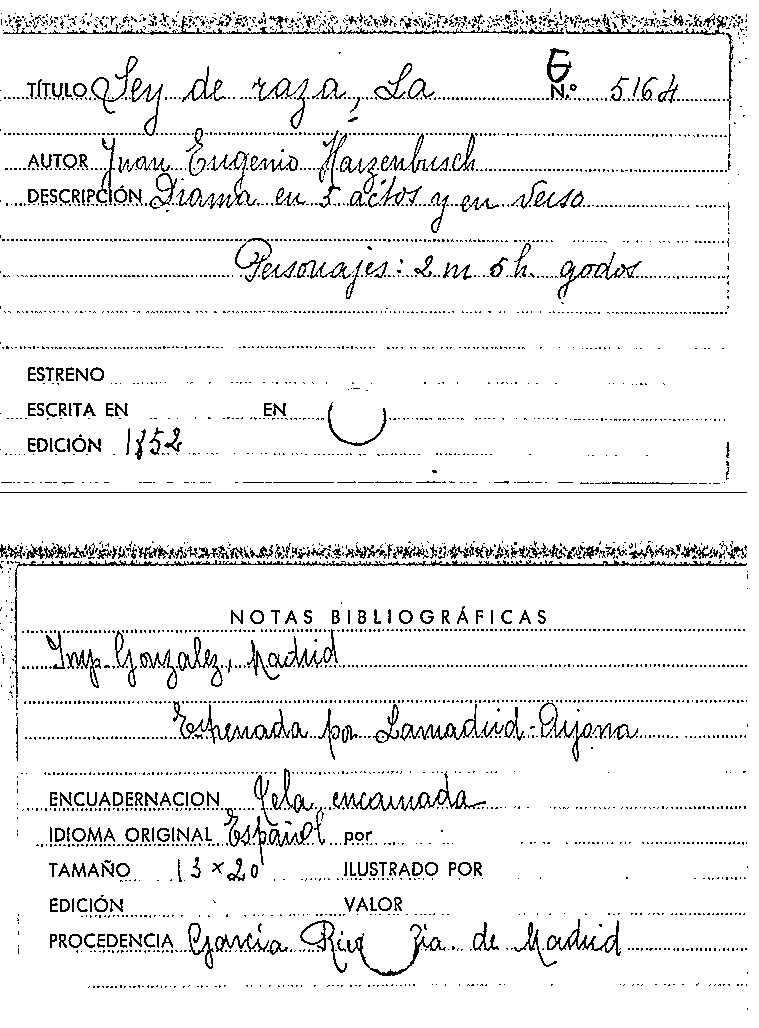 TÍTULO Ley de raza, La
G
N.º 5164
AUTOR Juan Eugenio Harzenbusch
DESCRIPCIÓN Drama en 5 actos y en verso
Personajes: 2 m 5 h. godos
ESTRENO
ESCRITA EN EN
EDICIÓN 1852
NOTAS BIBLIOGRÁFICAS
Imp. Gonzalez, Madrid
Estrenada por Lamadrid-Arjona
ENCUADERNACION Tela encarnada
IDIOMA ORIGINAL Español por
TAMAÑO 13 x 20 ILUSTRADO POR
EDICIÓN VALOR
PROCEDENCIA García Rico de Madrid